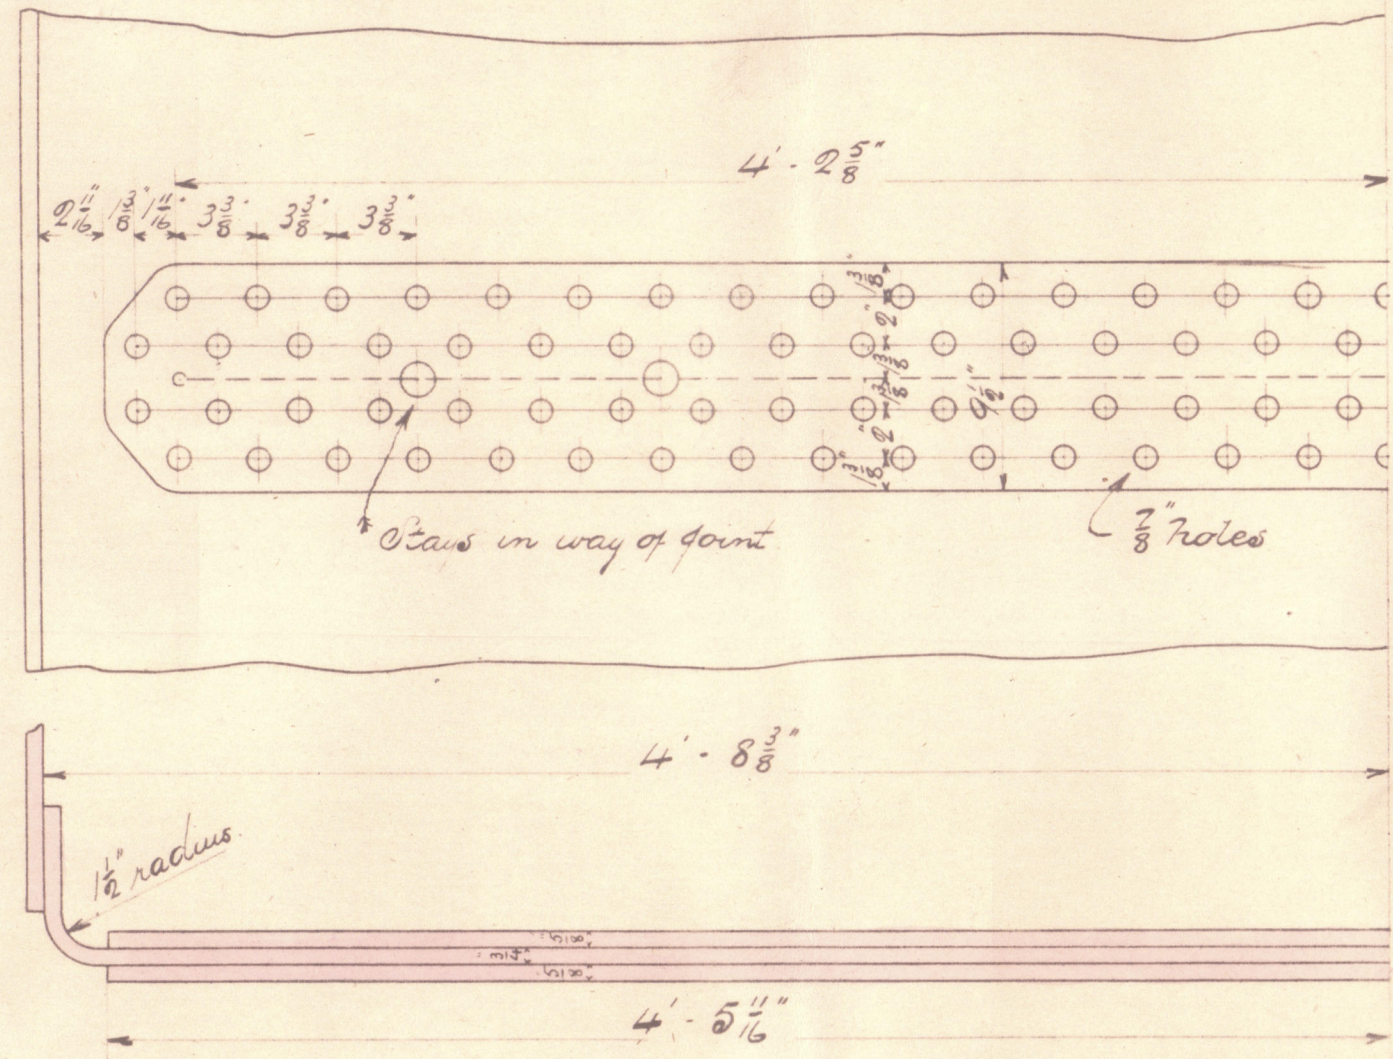 4' - 2 5/8"
2 11/16" 1 3/8" 1 11/16" 3 3/8" 3 3/8" 3 3/8"
1 3/8" 2" 1 3/8" 1 3/8" 2" 1 3/8"
9 1/2"
Stays in way of joint
7/8" holes
4' - 8 3/8"
1 1/2" radius
5/8"
3/4"
5/8"
4' - 5 11/16"